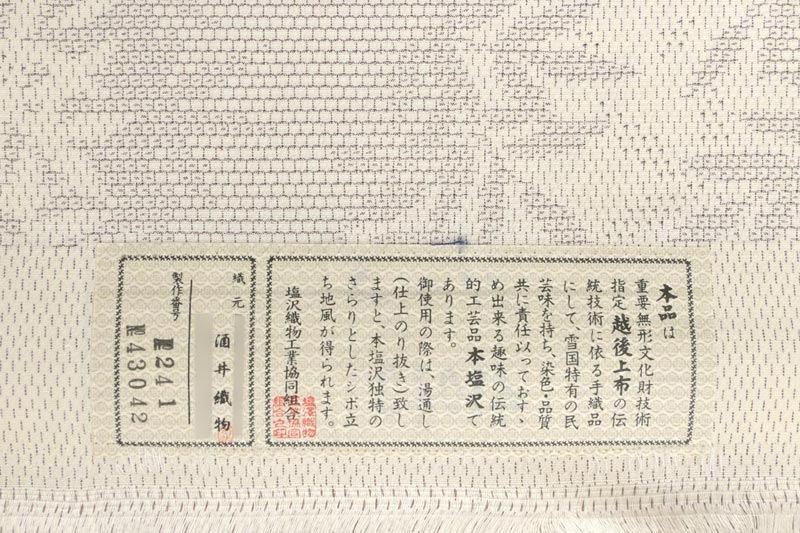 本品は
重要無形文化財技術
指定越後上布の伝
統技術に依る手織品
にして、雪国特有の民
芸味を持ち、染色・品質
共に責任以っておすゝ
め出来る趣味の伝統
的工芸品本塩沢て
あります。
御使用の際は、湯通し
(仕上のり抜き)致し
ますと、本塩沢独特の
さらりとしたシボ立
ち地風が得られます。
塩沢織物工業協同組合
織元
酒井織物
製作番号
M241
M43042